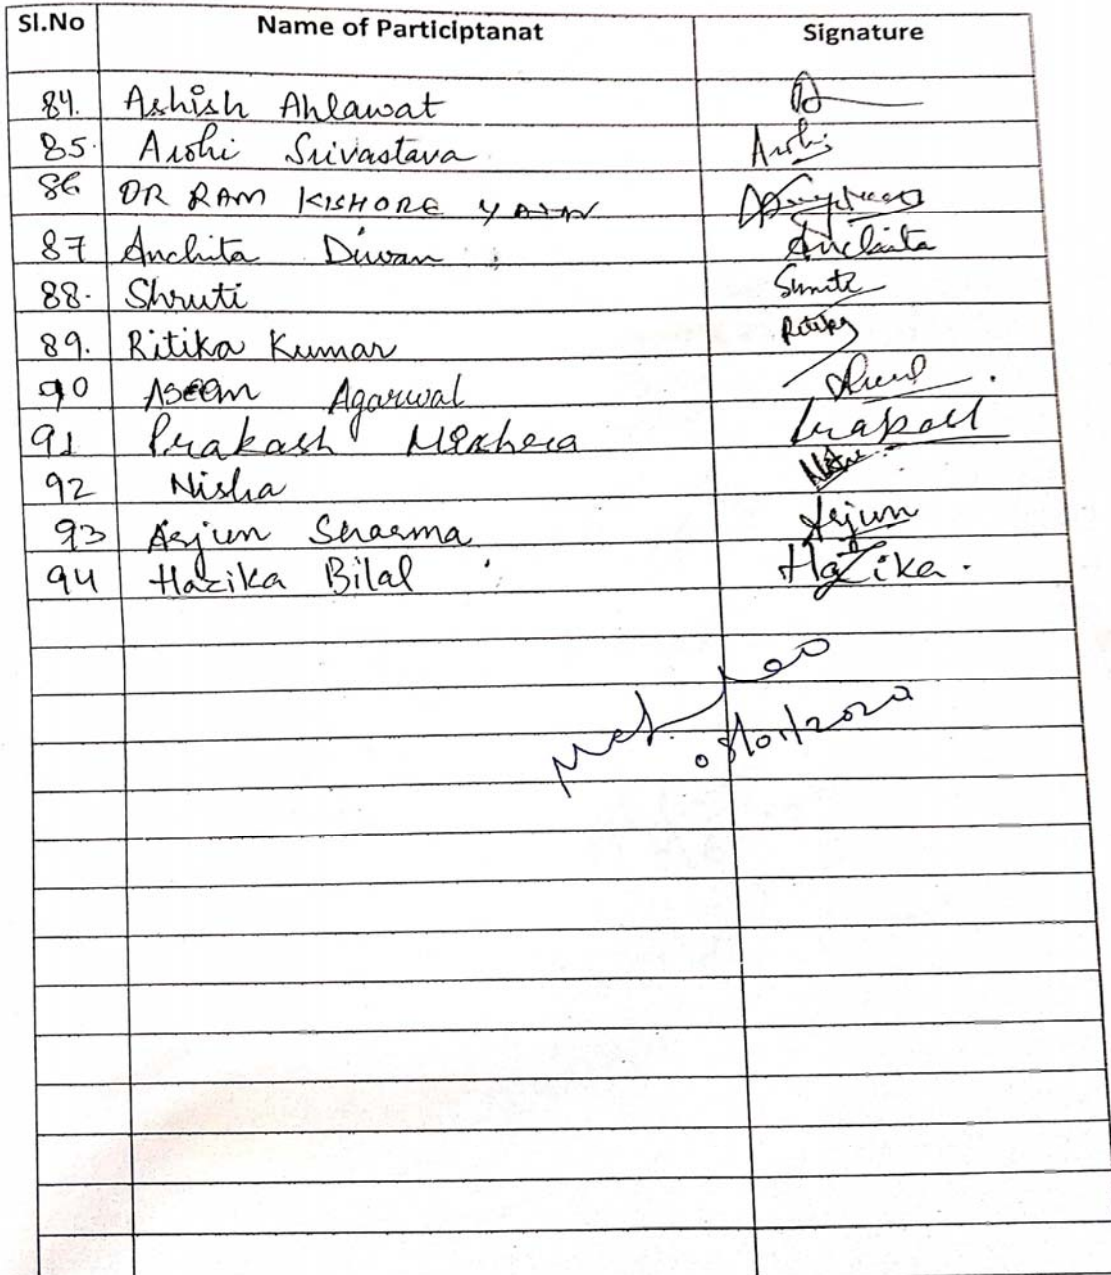 Sl.No Name of Participtanat Signature
84. Ashish Ahlawat
85. Arohi Srivastava Arohi
86 DR RAM KISHORE
87 Anchita Diwan Anchita
88. Shruti
89. Ritika Kumar Ritika
90 Aseem Agarwal
91 Prakash Prakash
92 Nisha
93 Arjun Sharma Arjun
94 Hazika Bilal Hazika.
08/01/2020